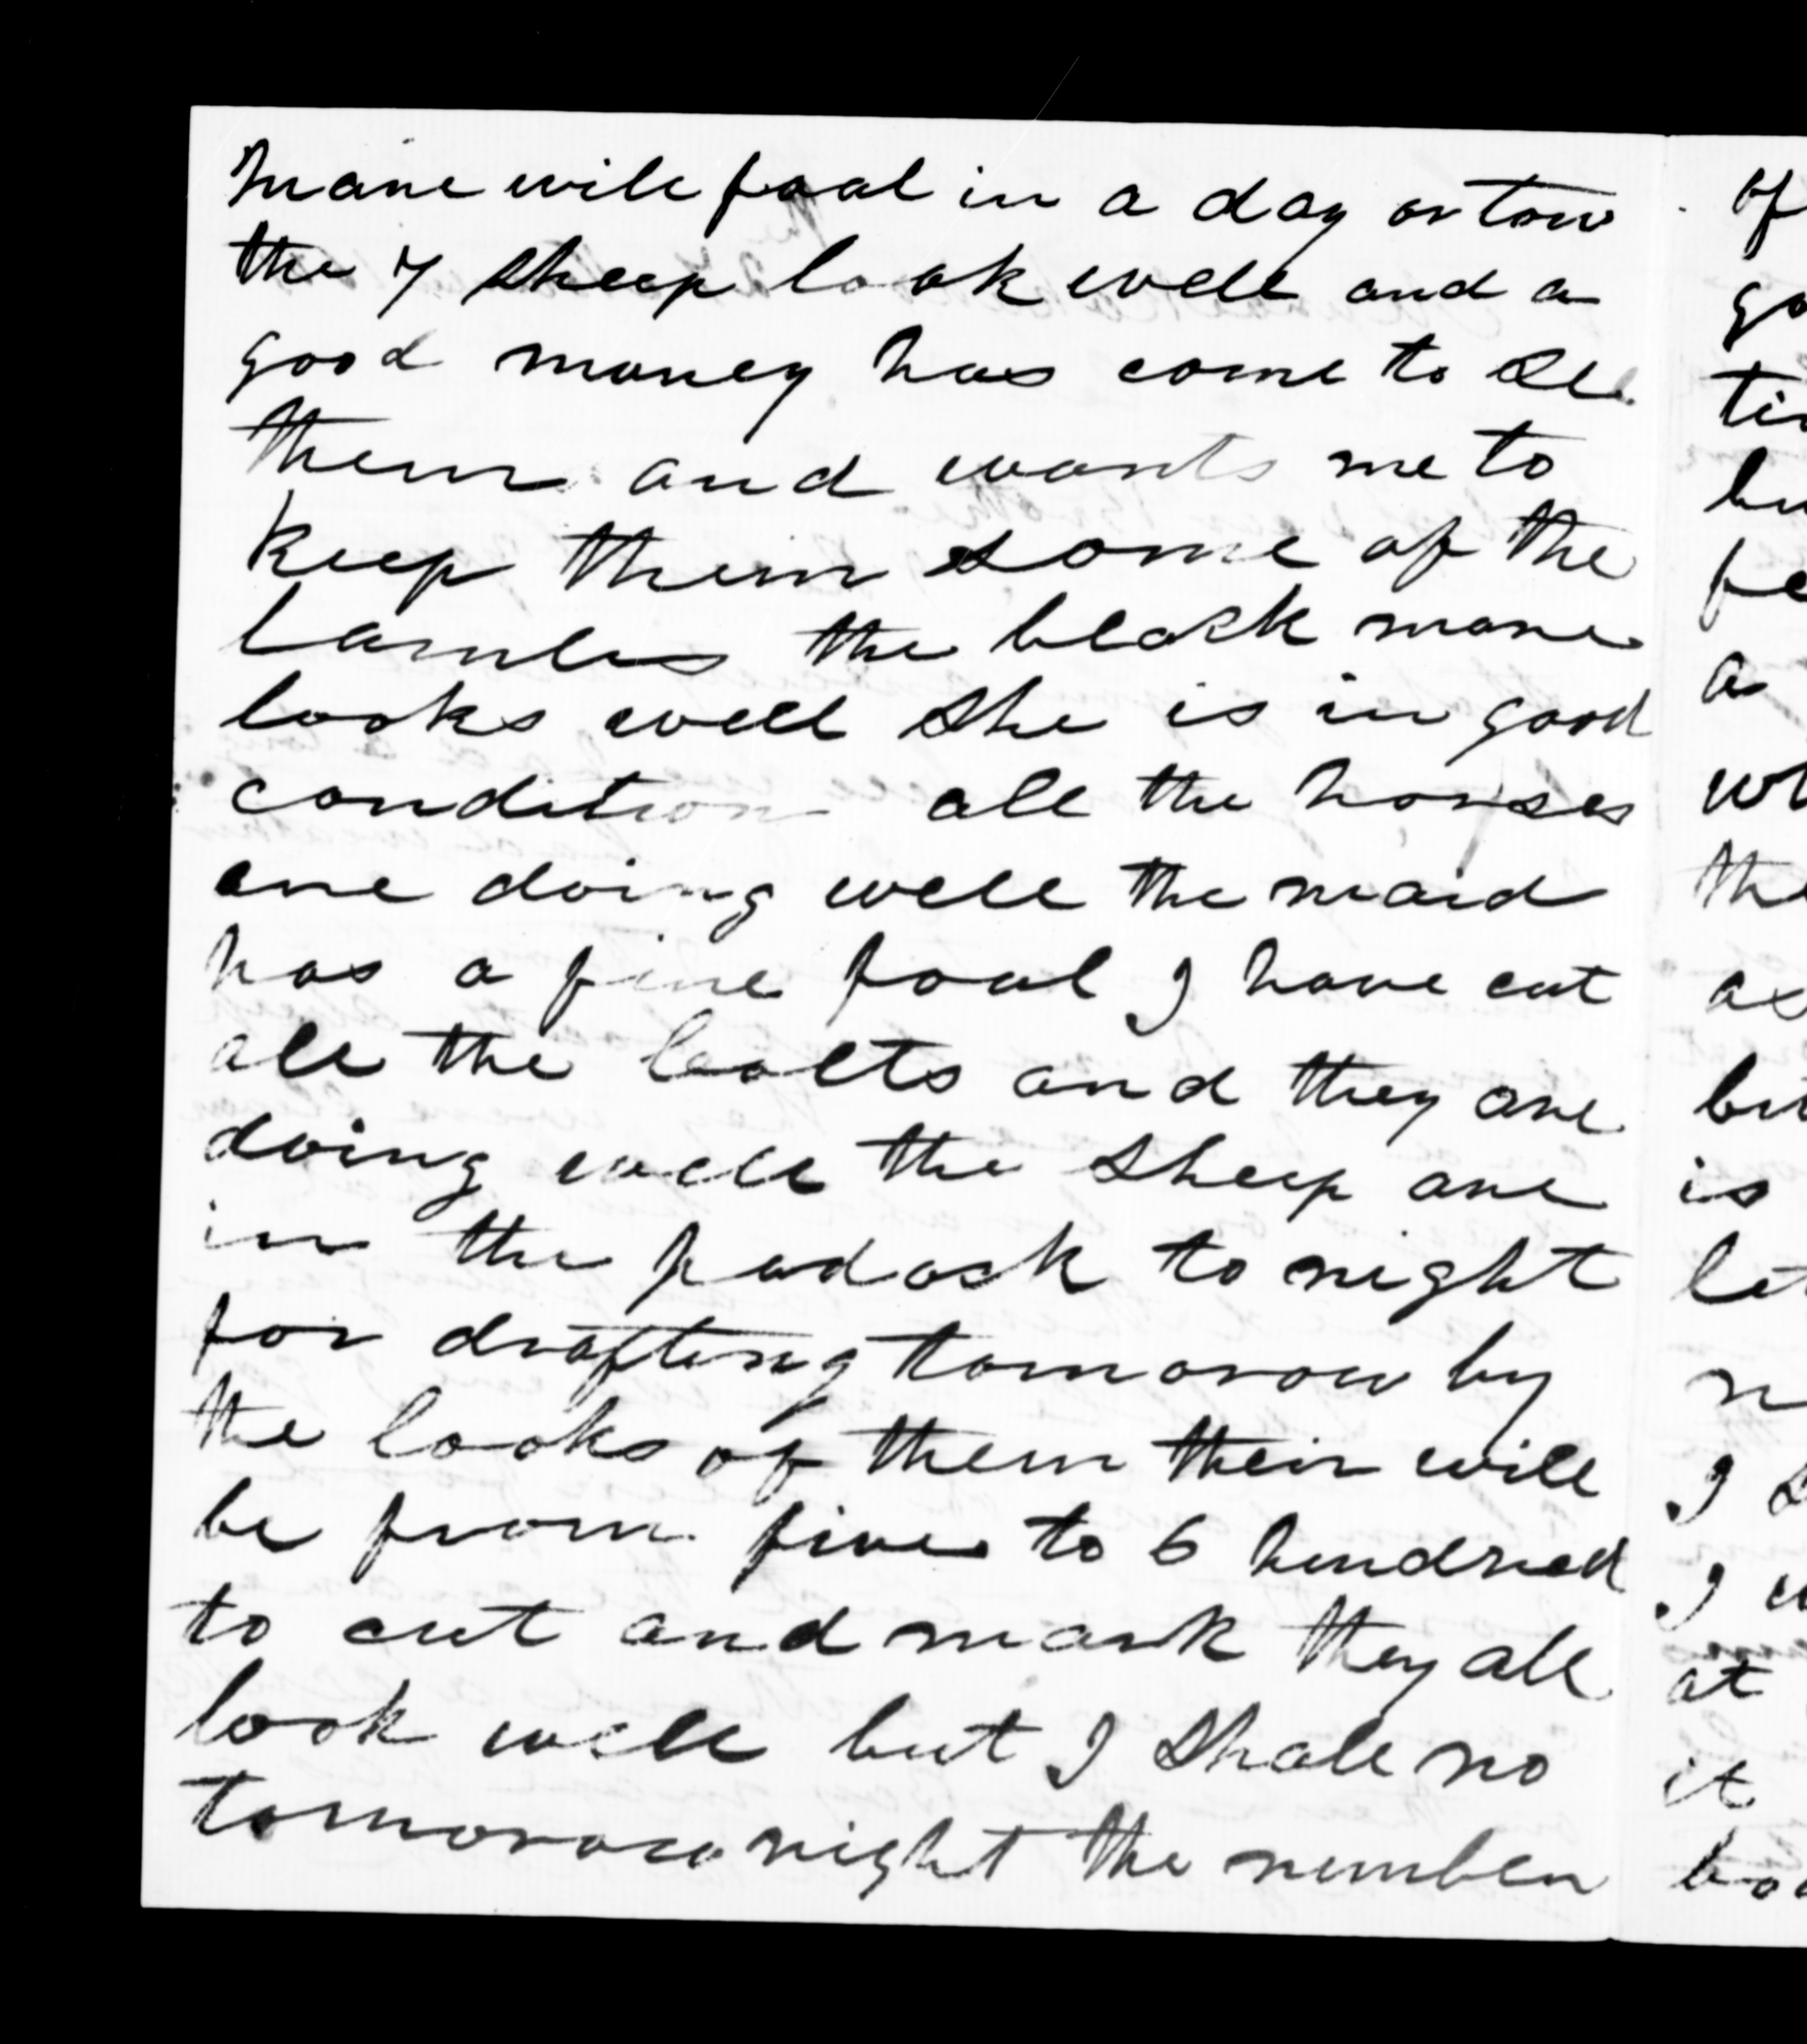 mare will foal in a day or tow
the 7 sheep look well and a
good money has come to see
them and wants me to
keep them some of the
lambs the black mare
looks well she is in good
condition all the horses
are doing well the maid
has a fine foal I have cut
all the coalts and they are
doing well the sheep are
in the padock to night
for drafting tomorow by
the looks of them their will
be from five to 6 hundred
to cut and mark they all
look well but I shall no
tomorow night the number
of
go
a
wh
the
as
is
let
I
I
at
it